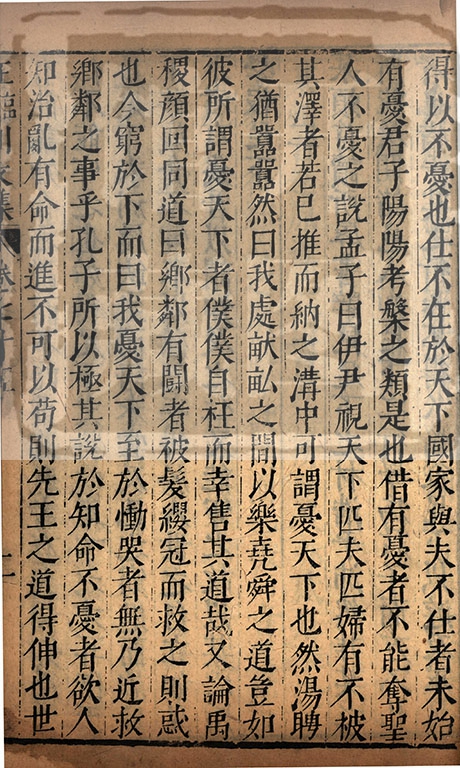 得以不憂也仕不在於天下國家與夫不仕者未始
有憂君子陽陽考槃之類是也借有憂者不能奪聖
人不憂之說孟子曰伊尹視天下匹夫匹婦有不被
其澤者若已推而納之溝中可謂憂天下也然湯聘
之猶囂囂然曰我處畎畝之間以樂堯舜之道豈如
彼所謂憂天下者僕僕自枉而幸售其道哉又論禹
稷顏回同道曰鄉鄰有鬪者被髮纓冠而救之則惑
也今窮於下而曰我憂天下至於慟哭者無乃近救
鄉鄰之事乎孔子所以極其說於知命不憂者欲人
知治亂有命而進不可以苟則先王之道得伸也世
王臨川文集 卷七十五 二